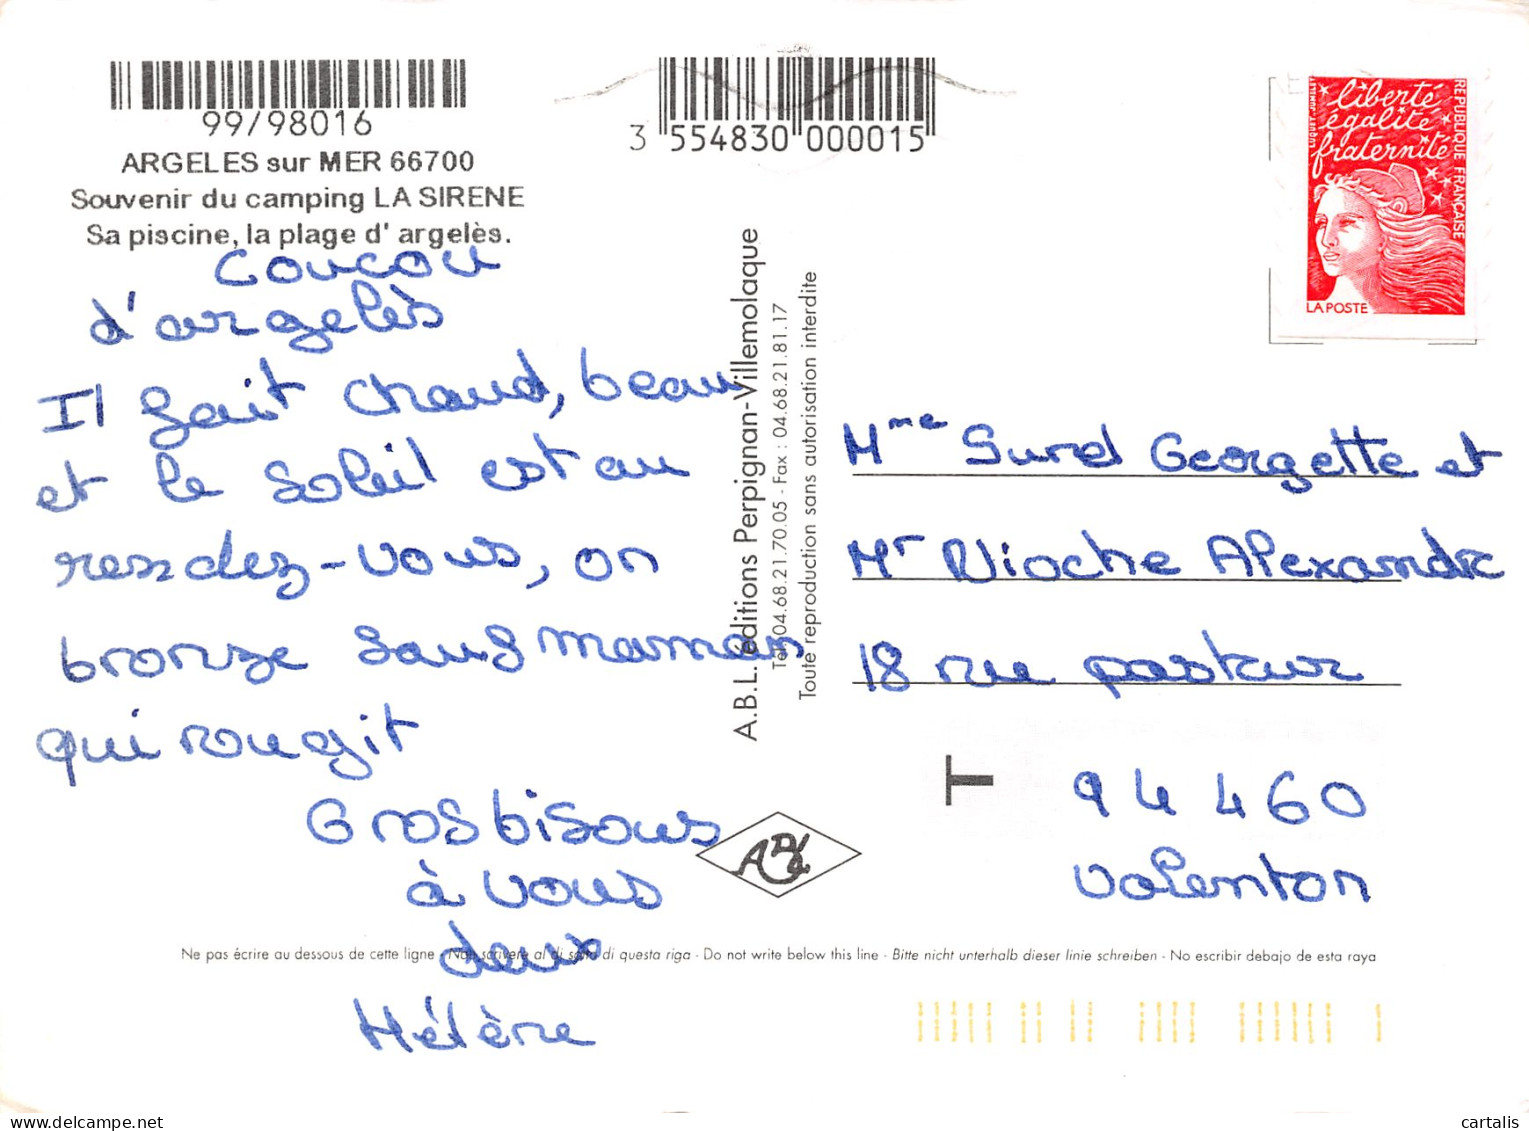 99/98016
ARGELES sur MER 66700
Souvenir du camping LA SIRENE
Sa piscine, la plage d' argelès.
Coucou
d'argelès
Il fait chaud, beau
et le soleil est au
rendez-vous, on
bronze sauf maman
qui rougit
Gros bisous
à vous
deux
Hélène
3 554830 000015
A.B.L. éditions Perpignan-Villemolaque
Tél. 04.68.21.70.05 - Fax : 04.68.21.81.17
Toute reproduction sans autorisation interdite
liberté
égalité
fraternité
RÉPUBLIQUE FRANÇAISE
LUQUET-JUMELET
LA POSTE
Mme Surel Georgette et
Mr Nioche Alexandre
18 rue pasteur
T
94460
Valenton
Ne pas écrire au dessous de cette ligne - Non scrivere al di sotto di questa riga - Do not write below this line - Bitte nicht unterhalb dieser linie schreiben - No escribir debajo de esta raya
cartalis